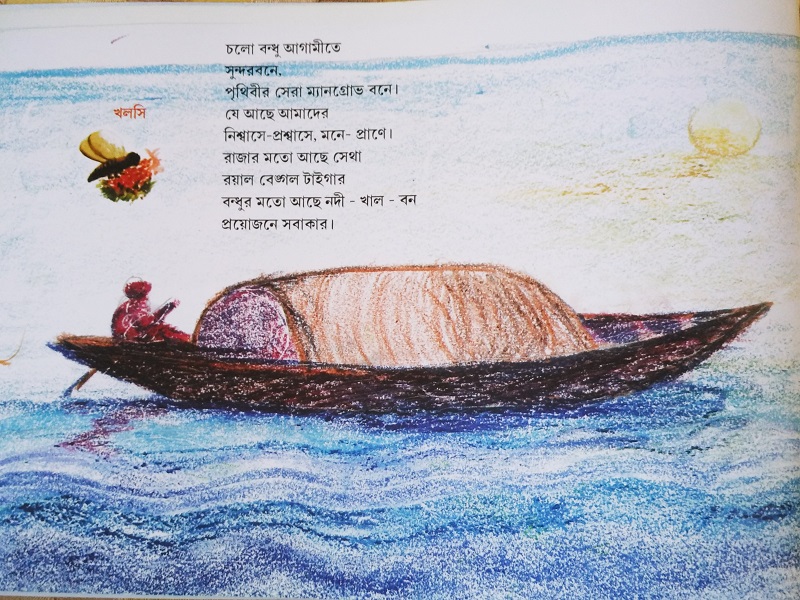 চলো বন্ধু আগামীতে
সুন্দরবনে,
পৃথিবীর সেরা ম্যানগ্রোভ বনে।
যে আছে আমাদের
নিশ্বাসে-প্রশ্বাসে, মনে- প্রাণে।
রাজার মতো আছে সেথা
রয়াল বেঙ্গল টাইগার
বন্ধুর মতো আছে নদী - খাল - বন
প্রয়োজনে সবাকার।
খলসি